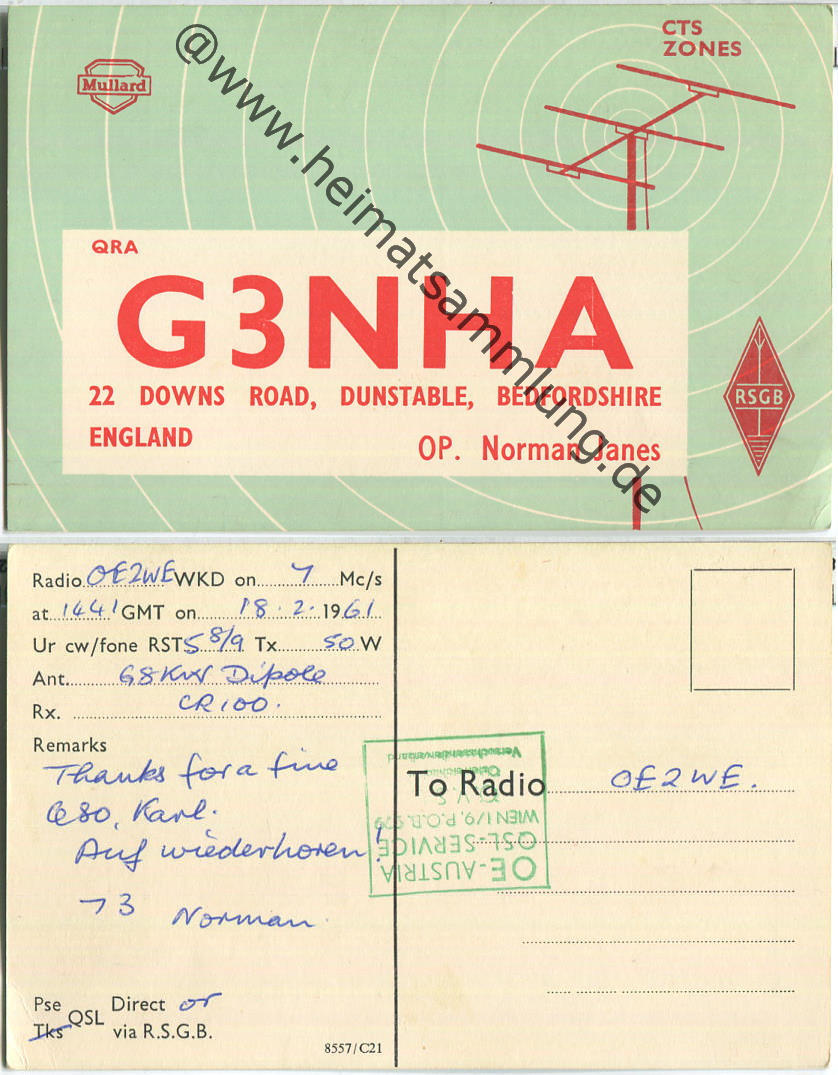 CTS
ZONES
Mullard
@www.heimatsammlung.de
QRA
G3NHA
22 DOWNS ROAD, DUNSTABLE, BEDFORDSHIRE
ENGLAND
OP. Norman Janes
RSGB
Radio OE2WE WKD on 7 Mc/s
at 1441 GMT on 18.2.1961
Ur cw/fone RST 5 8/9 Tx. 50 W
Ant. G8KW Dipole
Rx. CR100.
Remarks
Thanks for a fine
QSO, Karl.
Auf wiederhoren!
73 Norman
Pse Tks QSL Direct or
via R.S.G.B.
8557/C21
To Radio OE2WE.
OE-AUSTRIA
QSL-SERVICE
WIEN 1/9, P.O.B. 999
Ö. V. S. V.
Versuchssenderverband